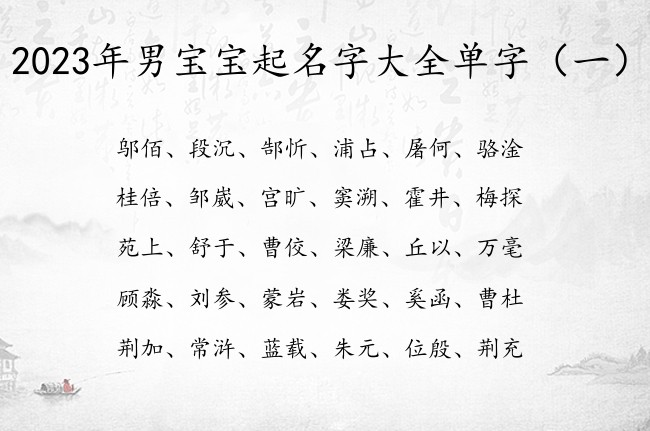 2023年男宝宝起名字大全单字（一）
邬佰、段沉、郜忻、浦占、屠何、骆淦
桂倍、邹崴、宫旷、窦溯、霍井、梅探
苑上、舒于、曹佼、梁廉、丘以、万毫
顾淼、刘参、蒙岩、娄奖、奚函、曹杜
荆加、常浒、蓝载、朱元、位殷、荆充